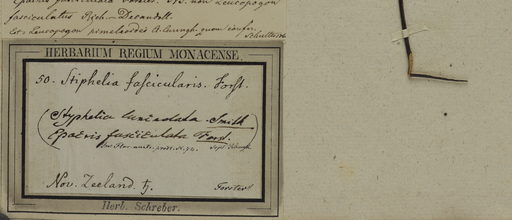 Epacris fasciculata Forster. non Leucopogon
fasciculatus Rich. — Decandoll.
Est Leucopogon pimeleoides A. Cuningh. quem confer.
Schultes
HERBARIUM REGIUM MONACENSE.
50. Stiphelia fascicularis. Forst.
(Styphelia lanceolata Smith
Epacris fasciculata Forst.)
Flor. austr. prod. N. 72.
Nov. Zeeland. ♄.
Forster
Herb. Schreber.